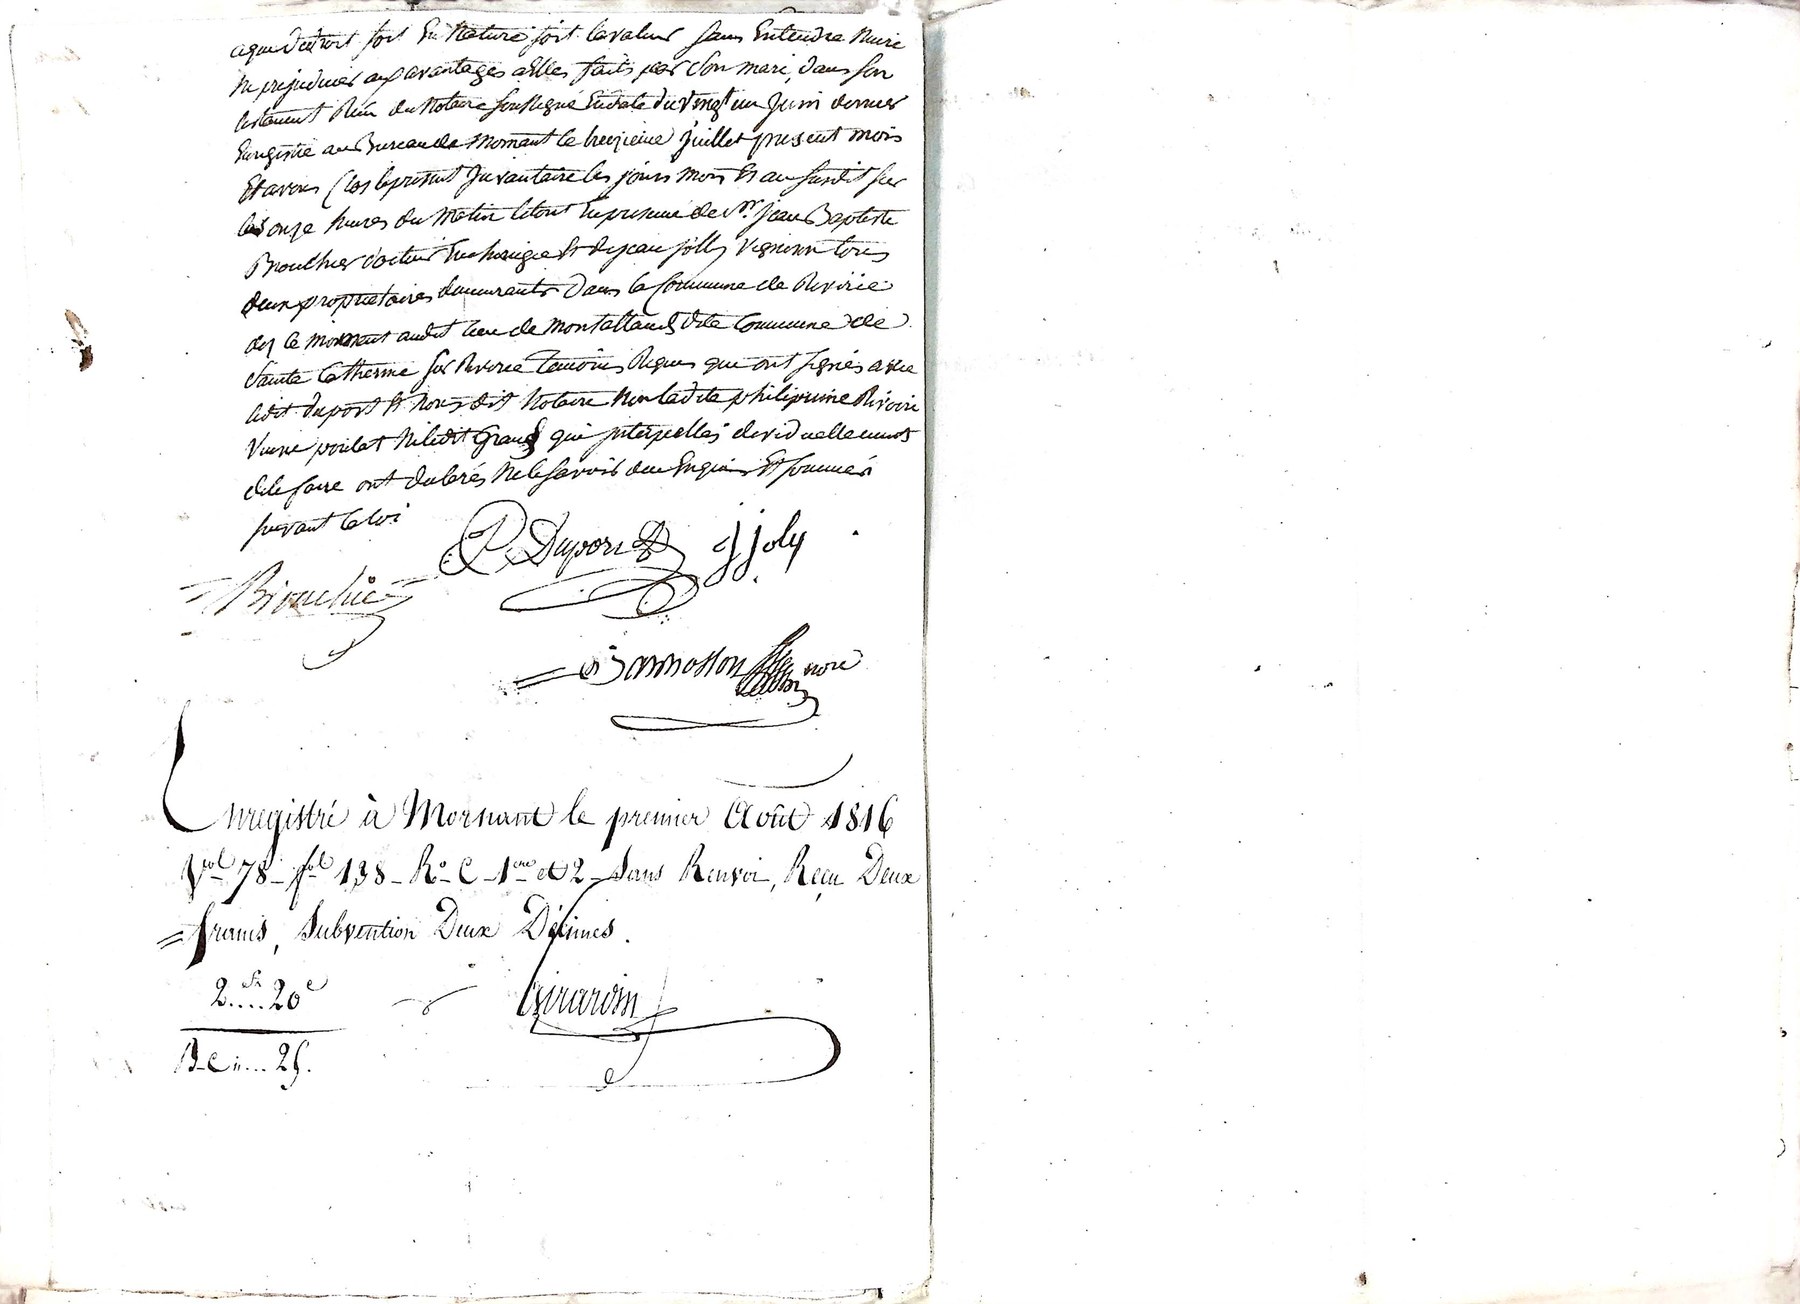 a que droit soit En Nature soit lavaleur sans Entendre Nuire
Ny prejudicier aux avantages a Elles faits par Son mari, dans son
testament Réçu du Notaire soussigné Endate du vingt un Juin dernier
Enrégistré au Bureau de Mornant le treizieme juillet present mois
Et avons Clos le present Inventaire les jours mois Et an susdit sur
les onze heures du Matin letout En presence de Sr. jean Baptiste
Brouchier docteur En chirurgie Et de jean jolly vigneron tous
deux proprietaires demeurants dans la Commune de Riverie
de ce moment audit lieu de Montalland dite Commune de
Sainte Catherine sur Riverie Temoins Réquis qui ont signés avec
ledit dupont Et Nous dit Notaire Non ladite philipinne Rivoire
Veuve poulat Ni ledit Grand qui interpellés dividuellement
de le faire ont declarés Ne le savoir de ce Enquis Et sommés
suivant la loi
P Dupont j joly
Brouchier
Bonnosson nore
Enregistré à Mornant le premier Août 1816
Vol 78 - fol 138 - Ro. C - 1ere et 2 - Sans Renvoi, Reçu Deux
= francs, Subvention Deux Décimes.
2 fr.... 20 c
Girardin
B.C..... 25.